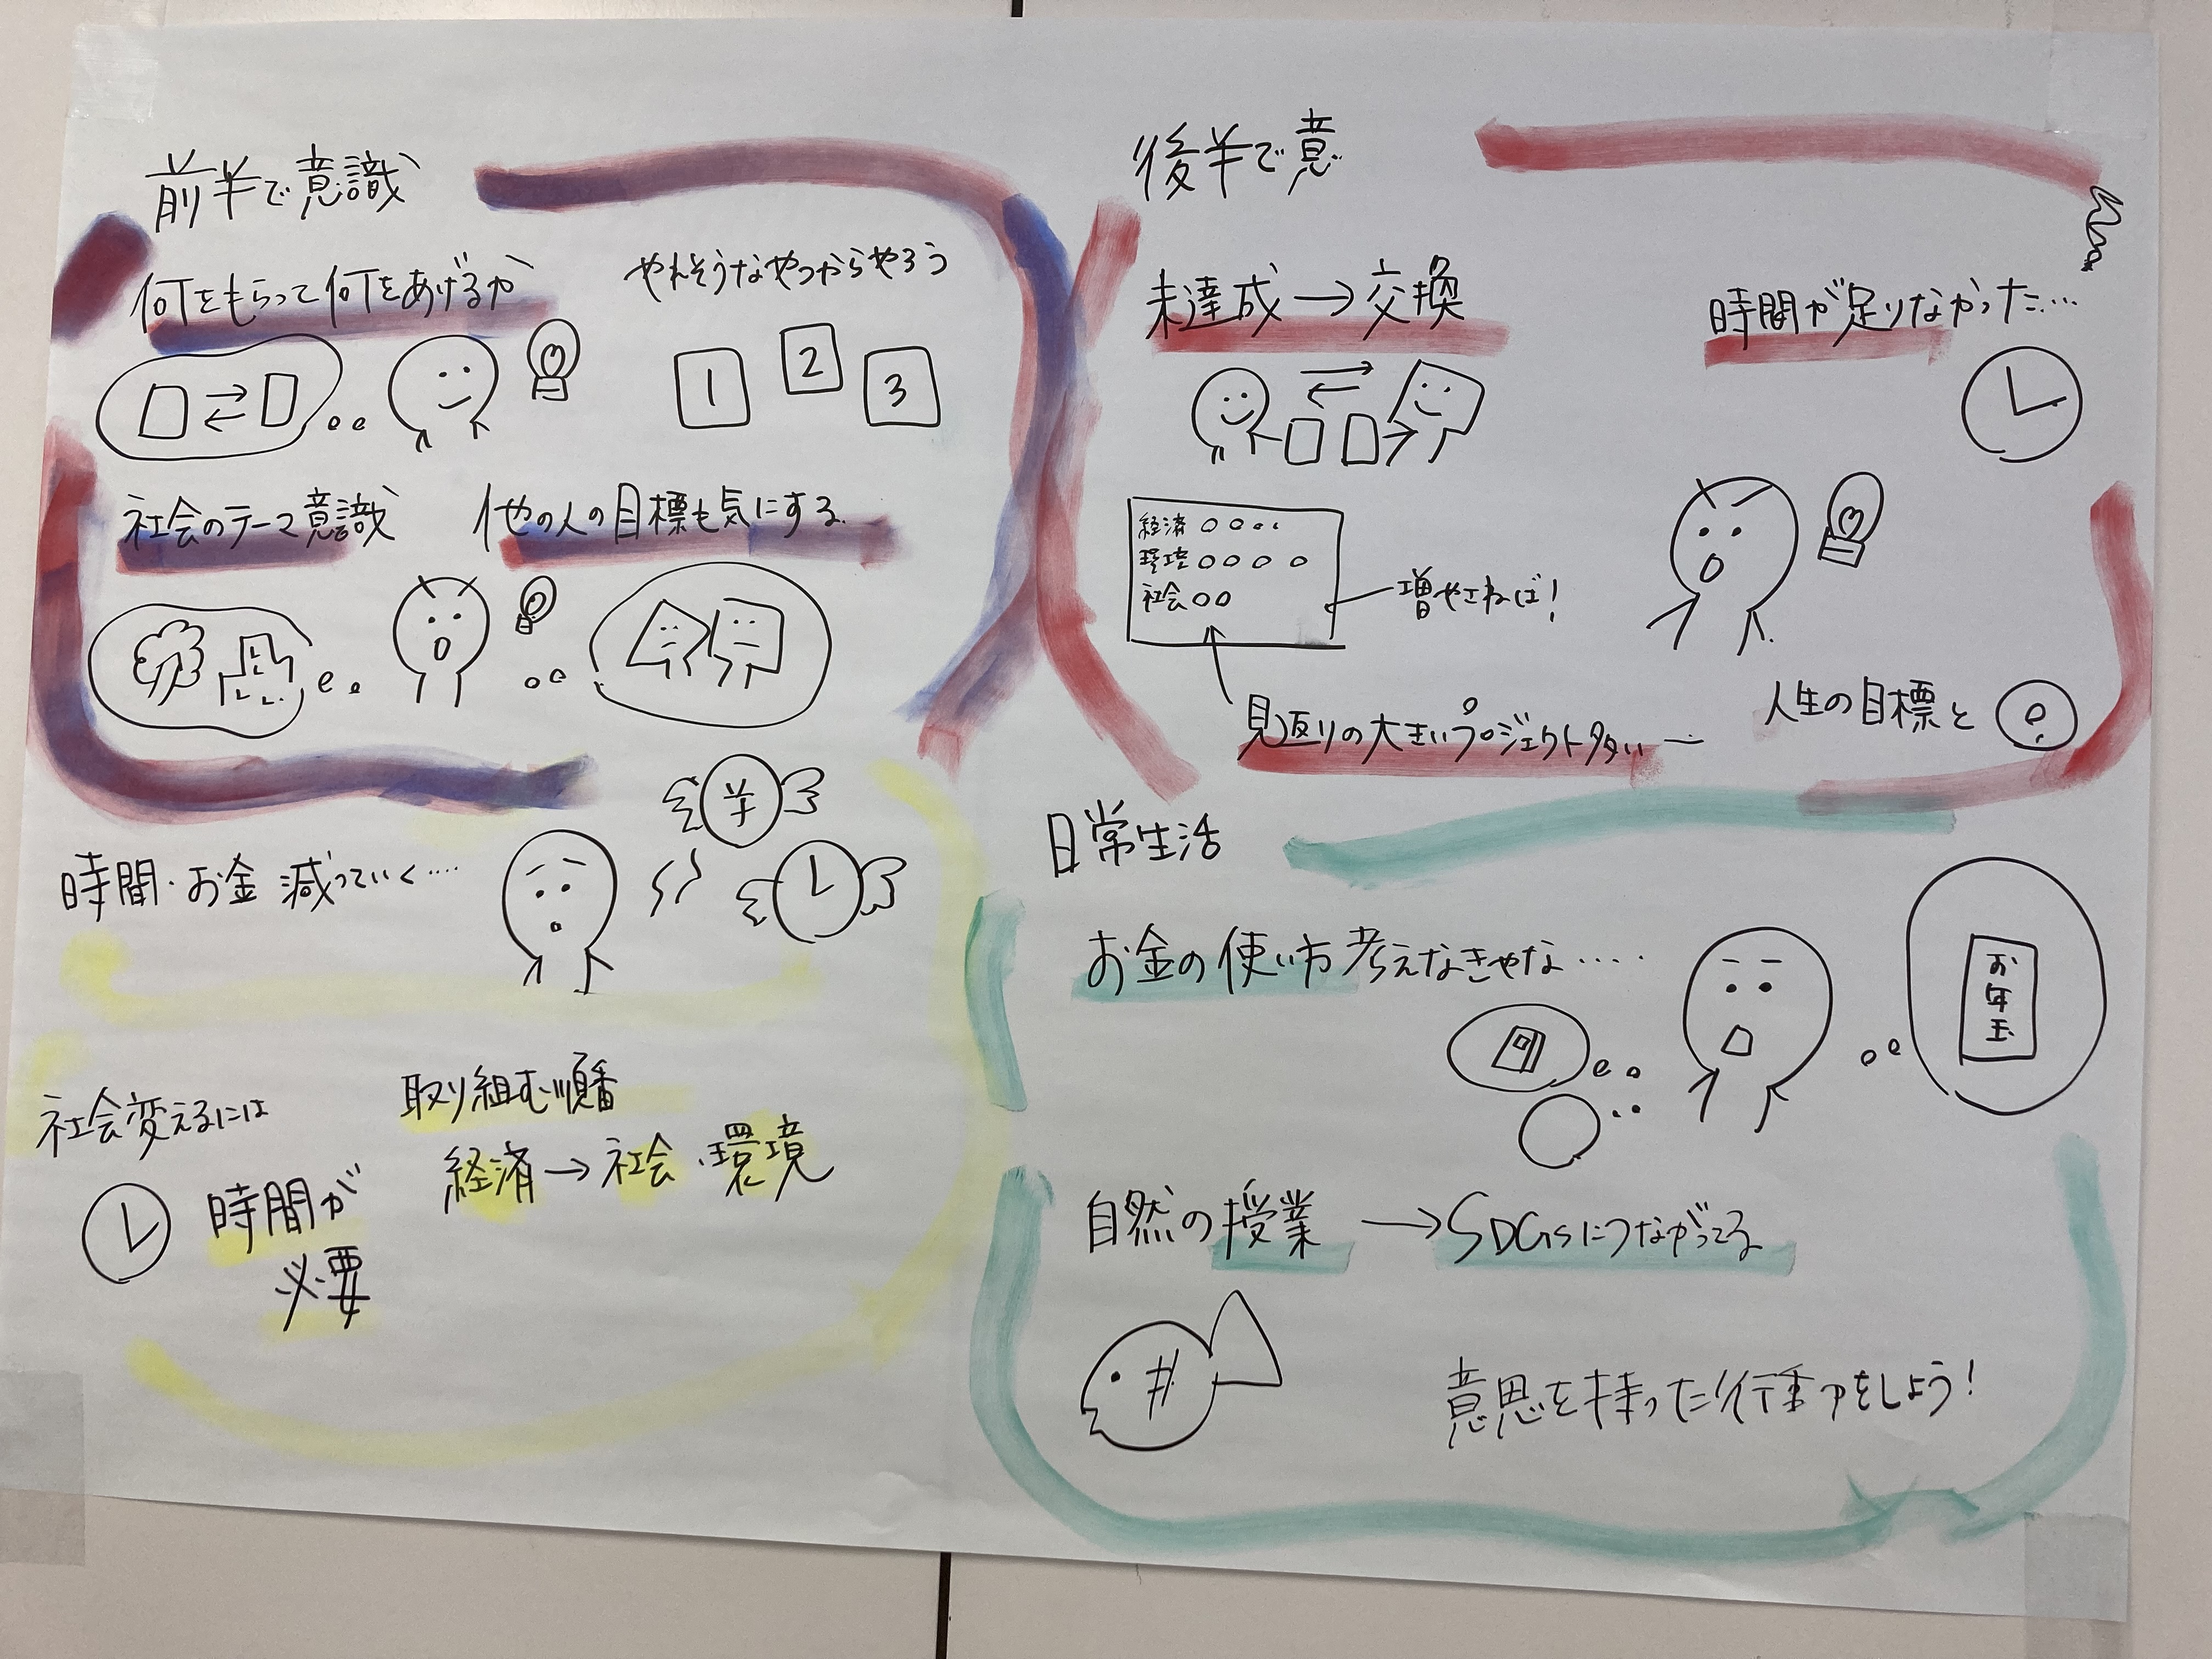 前半で意識
何をもらって何をあげるか
やれそうなやつからやろう
1
2
3
社会のテーマ意識
他の人の目標も気にする
後半で意
未達成→交換
時間が足りなかった…
経済○○○○
環境○○○○
社会○○
増やさねば!
見返りの大きいプロジェクト多い
人生の目標と
¥
時間・お金 減っていく…
社会変えるには
時間が
必要
取り組む順番
経済→社会・環境
日常生活
お金の使い方 考えなきゃな……
お年玉
自然の授業 →SDGsにつながってる
意思を持った行動をしよう!